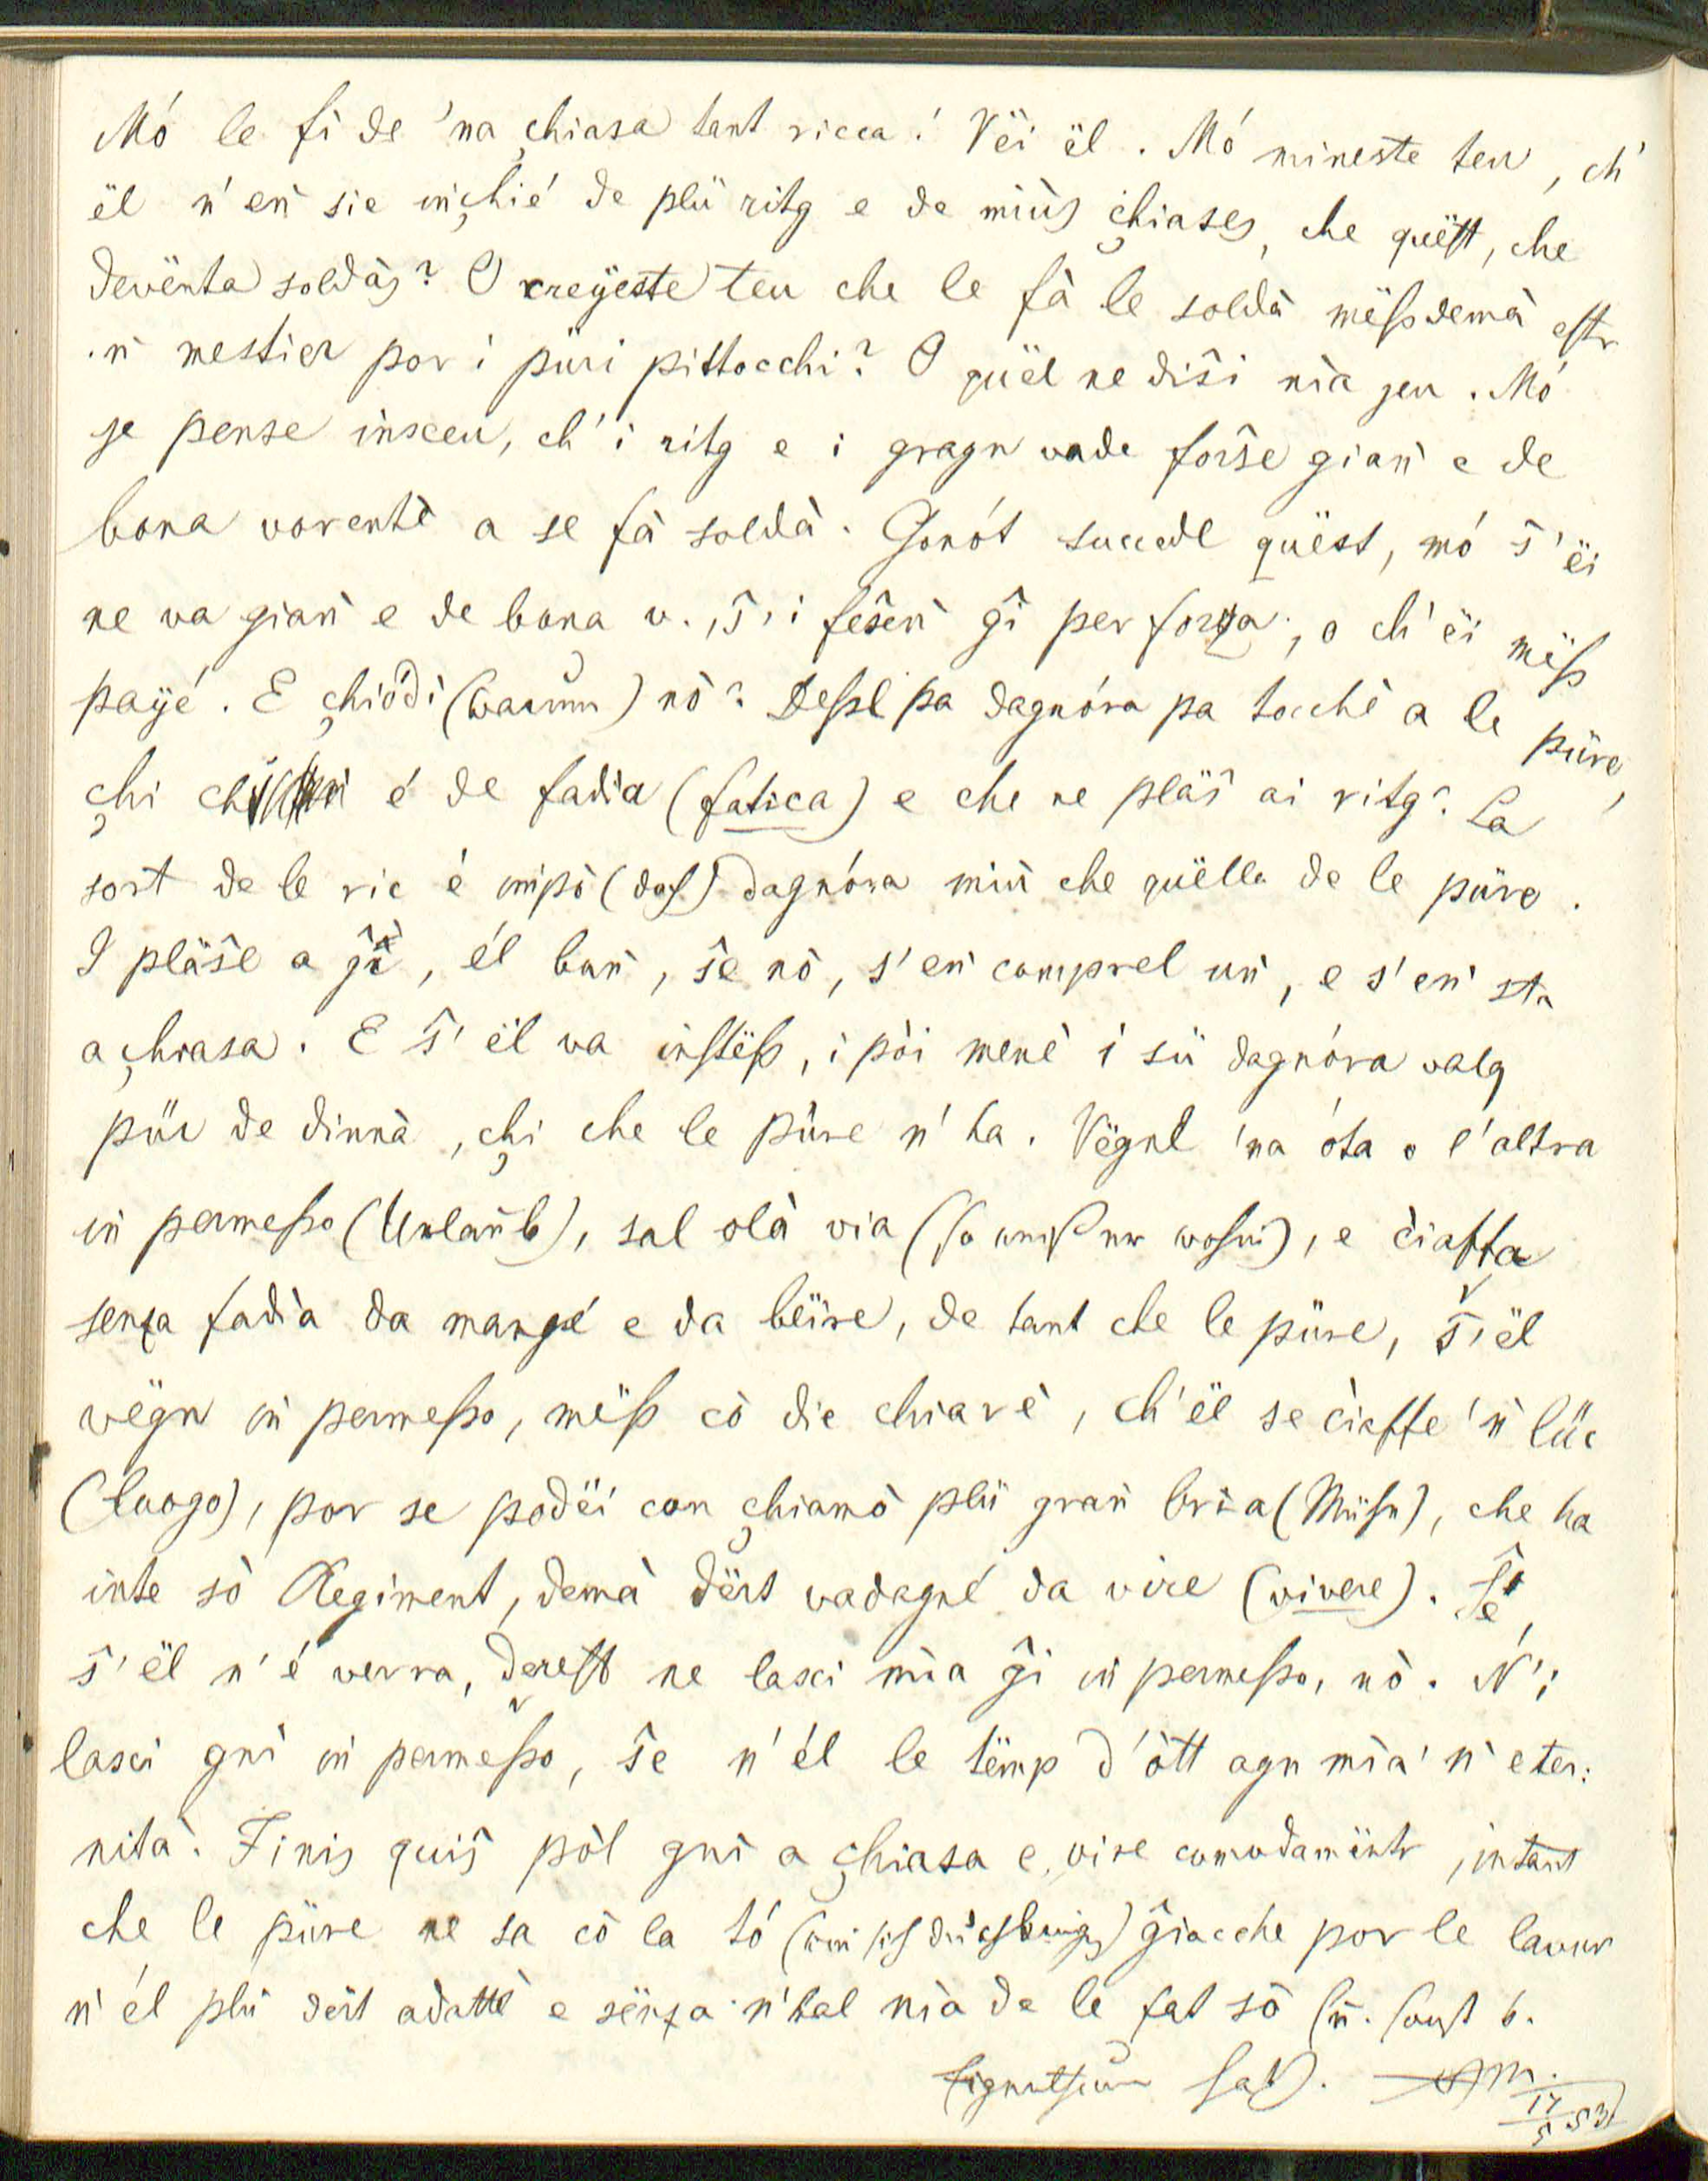 Mó le fì de 'na çhiasa tant ricca! Vëi ël. Mó mineste teu, ch'
ël n' eǹ sie iǹçhié de plü ritg e de miùs çhiases, che quëst, che
devënta soldàs? O creyeste teu che le fà le soldà mëss demà estr
'ǹ mestier por i püri pittocchi? O quël ne diŝi nìa jeu. Mó
je pense insceu, ch' i ritg e i gragn vade forŝe giaǹ e de
bona vorentè a se fà soldà. Gonót succedel quëst, mó ŝ' ëi
ne va giaǹ e de bona v., ŝ' i feŝeǹ ĝì per forza, o ch' ëi mëss
payé. E çhiodì (warum) nò? Dessl pa dagnóra pa tocché a le püre,
çhi ch' é de fadìa (fatica) e che ne pläŝ ai ritg? La
sort de le ric é impò (doch) dagnóra miù che quëlla de le püre.
I pläŝel a ĝì, él boǹ, ŝe nò, s' eǹ comprel uǹ, e s' eǹ sta
a çhiasa. E ŝ' ël va instëss, i pòi menè i sü dagnóra valg
pür de dinnà, çhi che le püre n' ha. Vëgnl 'na óta o l' altra
iǹ permesso (Urlaub), sal olà via (so weiß er wohin), e ċiaffa
senza fadìa da mangé e da bëire, de tant che le püre, ŝ' ël
vëgn iǹ permesso, mëss cò die chiarè, ch' ël se ċiaffe 'ǹ lüc
(luogo), por se podëi con çhiamò plü graǹ brìa (Mühe), che ha
inte sò Regiment, demà dërt vadagné da vire (vivere). Ŝe,
ŝ' ël n' é verra, derest ne lasci mìa ĝì iǹ permesso, nò. N' i
lasci gnì iǹ permesso, ŝe n' él le tëmp d' òtt agn mìa 'ǹ eter:
nità. Finis quiŝ pòl gnì a çhiasa e vire comodamëntr, intant
che le püre ne sa cò la tó (wie sich durchbringen) ĝiacche por le lavur
n' él plü dërt adattè e sënza n' hal nìa de le fat sò
17/5 53